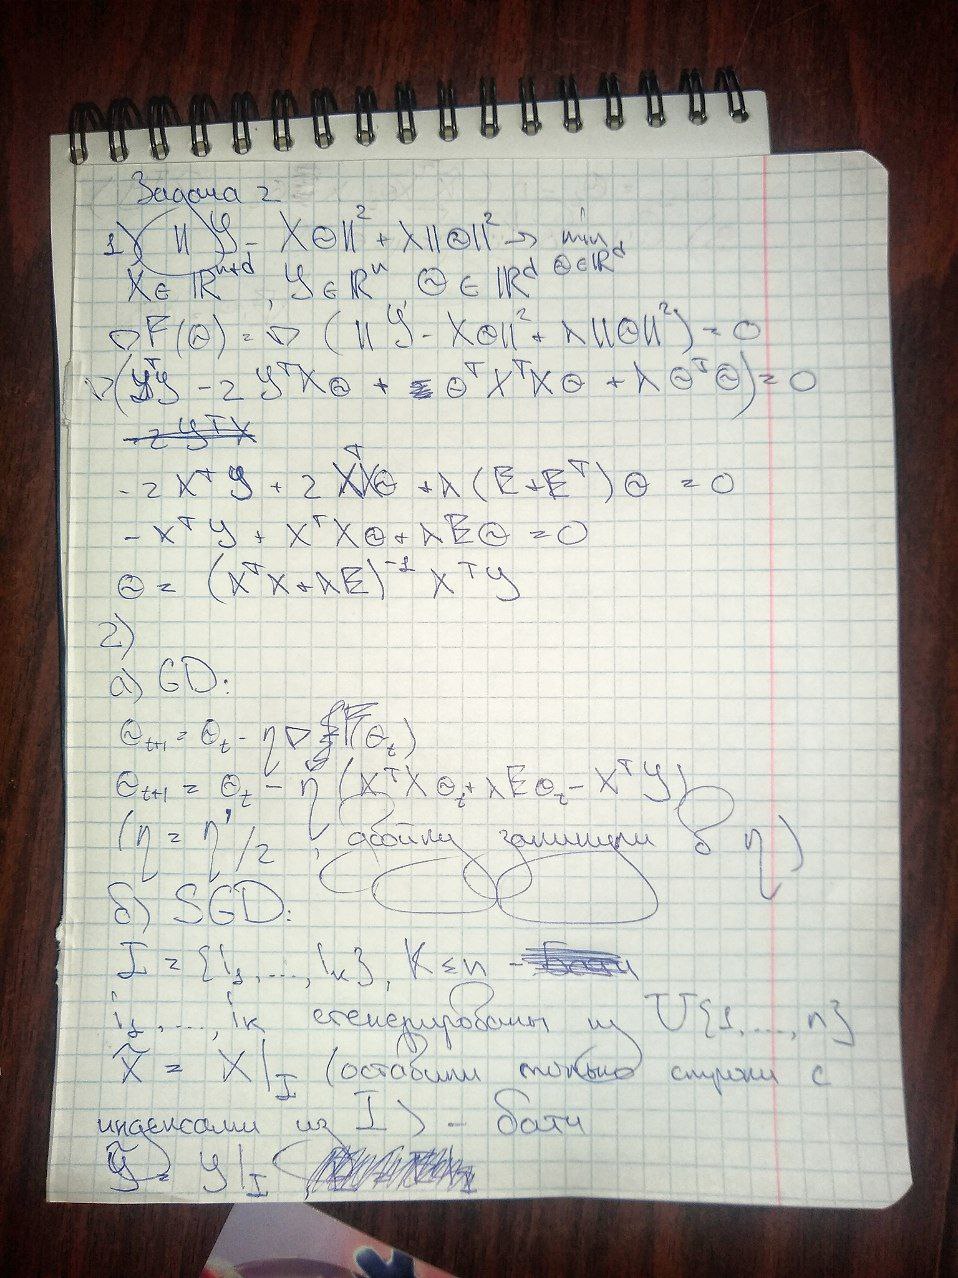 Задача 2
1) ||Y - XΘ||² + λ||Θ||² → min Θ∈ℝᵈ
X ∈ ℝⁿ⁺ᵈ, Y ∈ ℝⁿ, Θ ∈ ℝᵈ
∇F(Θ) = ∇ (||Y - XΘ||² + λ||Θ||²) = 0
∇(YᵀY - 2YᵀXΘ + ΘᵀXᵀXΘ + λΘᵀΘ) = 0
-2YᵀX
-2XᵀY + 2XᵀXΘ + λ(E+Eᵀ)Θ = 0
-XᵀY + XᵀXΘ + λEΘ = 0
Θ = (XᵀX + λE)⁻¹ XᵀY
2)
а) GD:
Θₜ₊₁ = Θₜ - η∇F(Θₜ)
Θₜ₊₁ = Θₜ - η (XᵀXΘₜ + λEΘₜ - XᵀY)
(η = η'/2, двойку запихнули в η)
б) SGD:
I = {i₁, ..., iₖ}, K ≤ n -
i₁, ..., iₖ сгенерированы из U{1, ..., n}
X̃ = X|_I (оставили только строки с
индексами из I) - батч
Ỹ = Y|_I